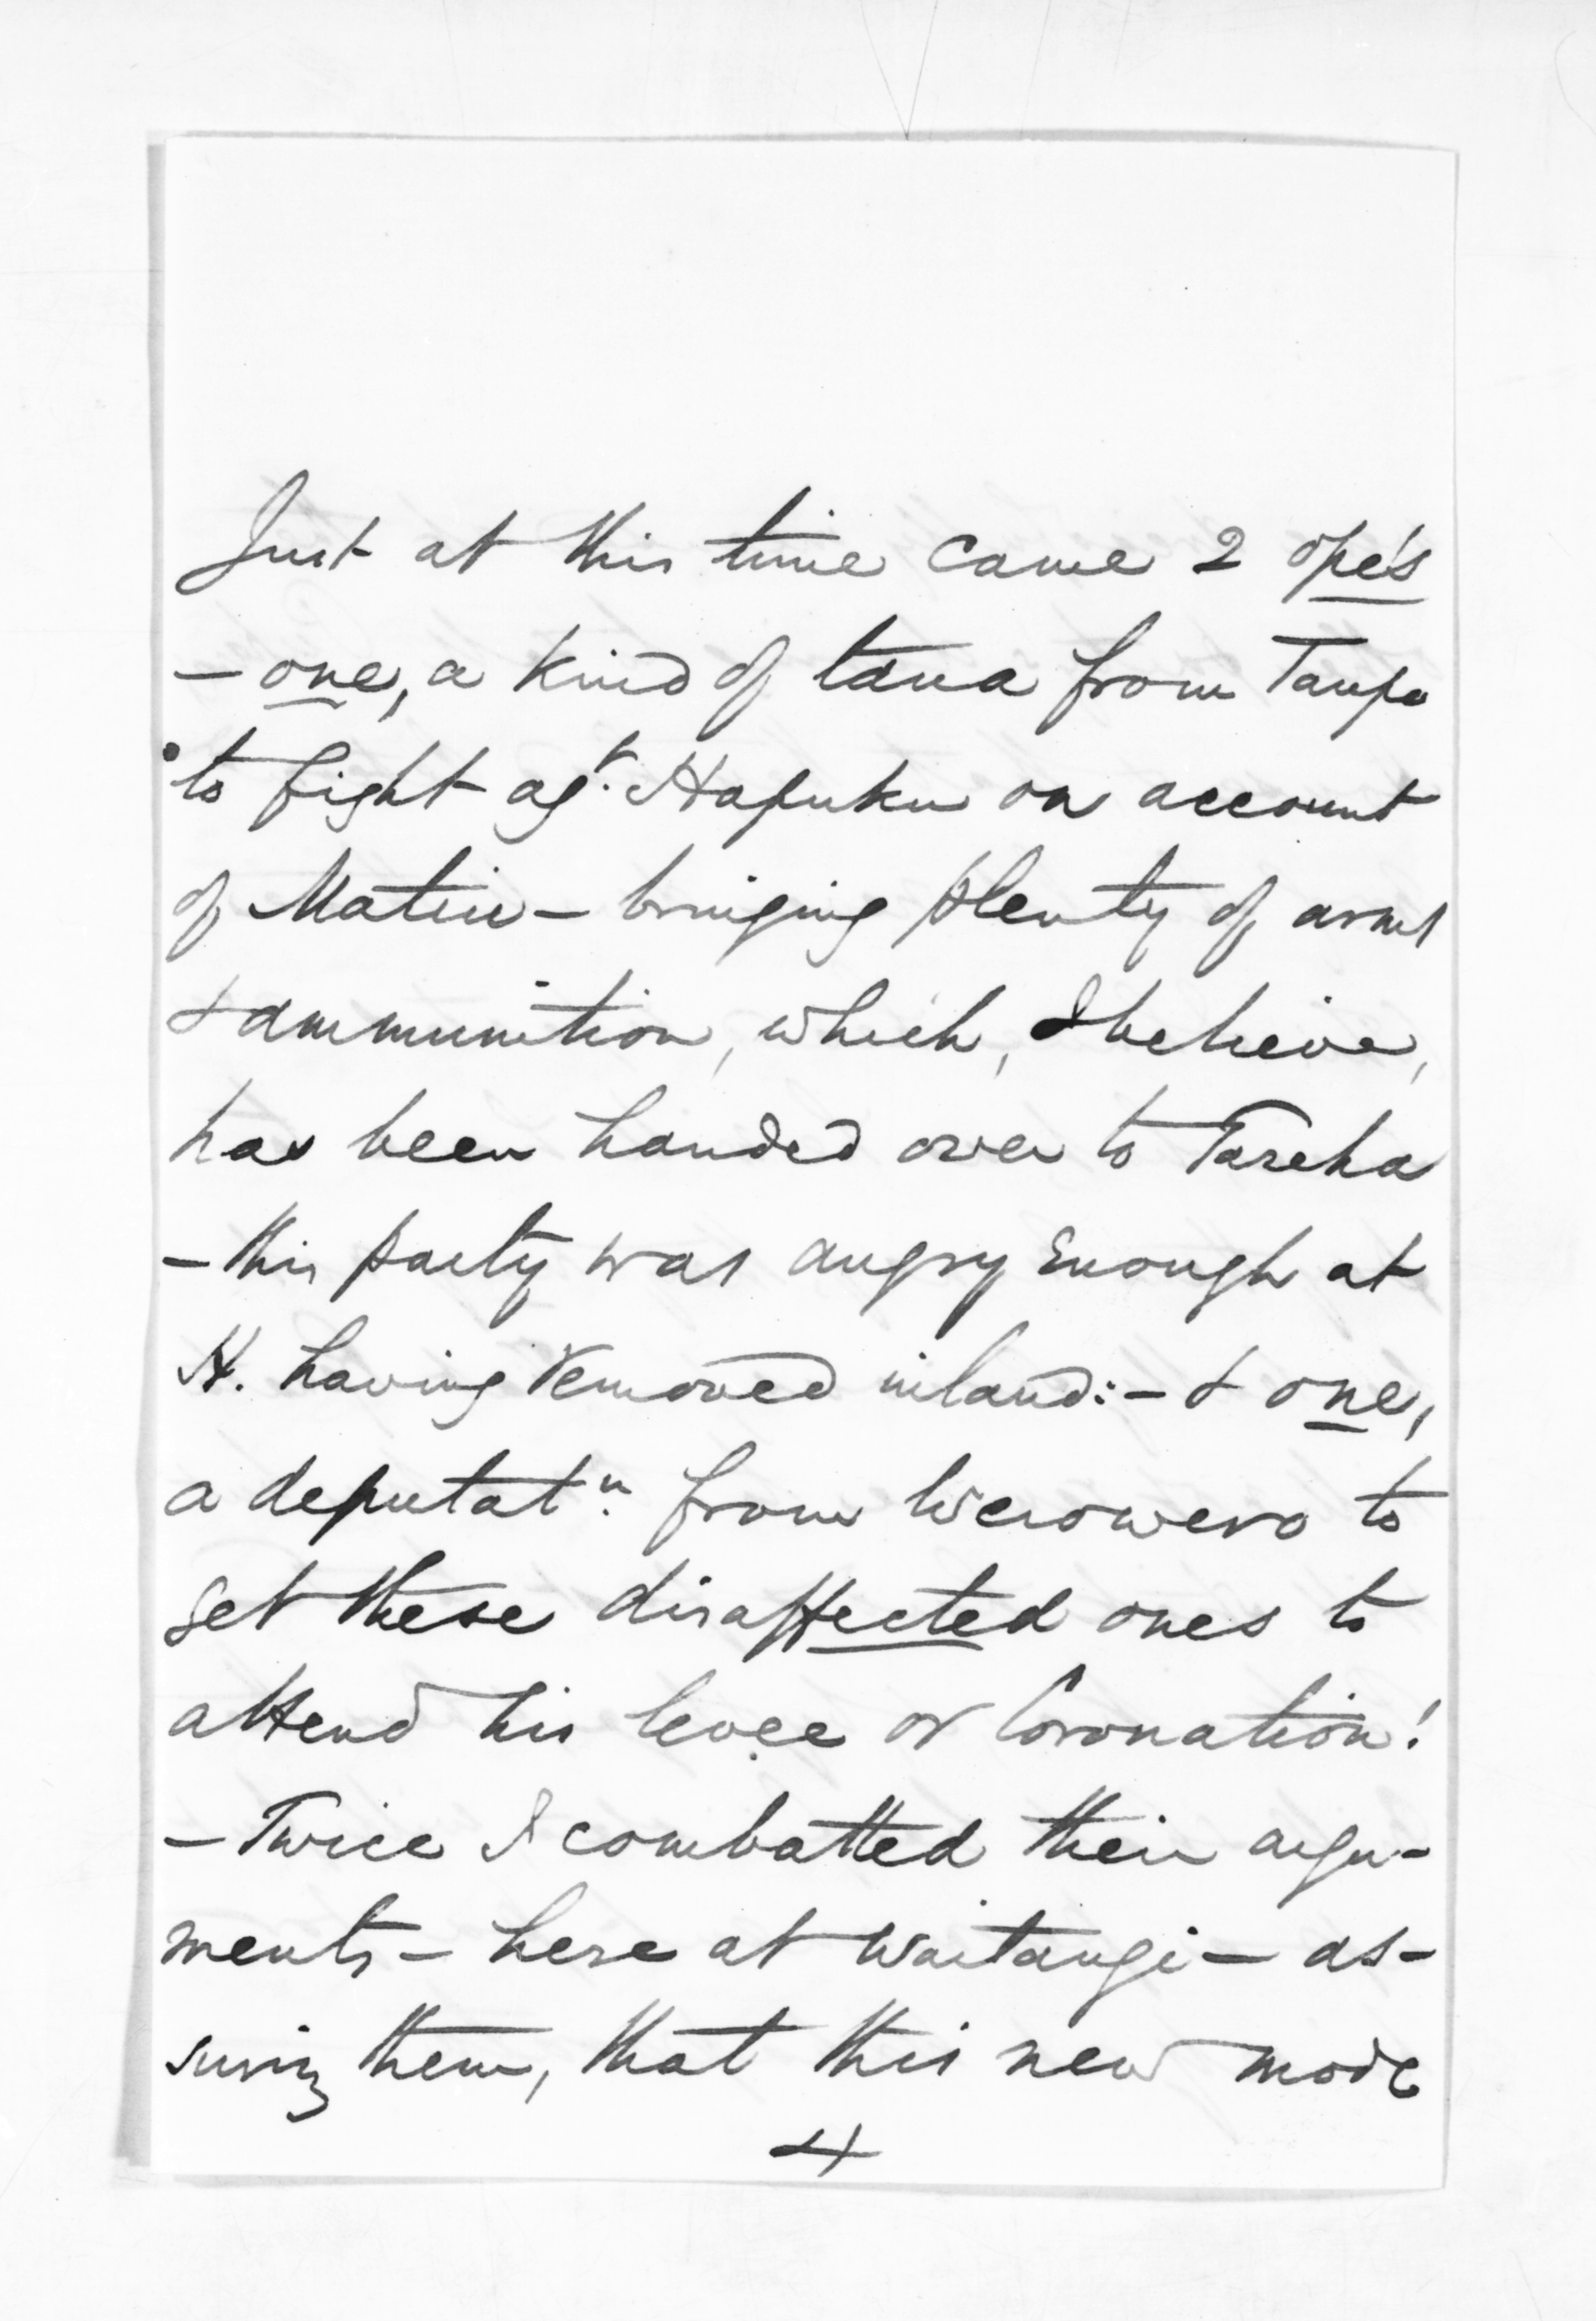 Just at this time came 2 ope's
– one, a kind of taua from Taupo
to fight agt. Hapuku on account
of Matiu – bringing plenty of arms
& ammunition, which, I believe,
has been handed over to Tareha
– this party was angry enough at
H. having removed inland: – & one,
a deputatn. from Werowero to
get these disaffected ones to
attend his levee or Coronation!
– Twice I combatted their argu-
ments – here at Waitangi – as-
suring them, that this new mode
4